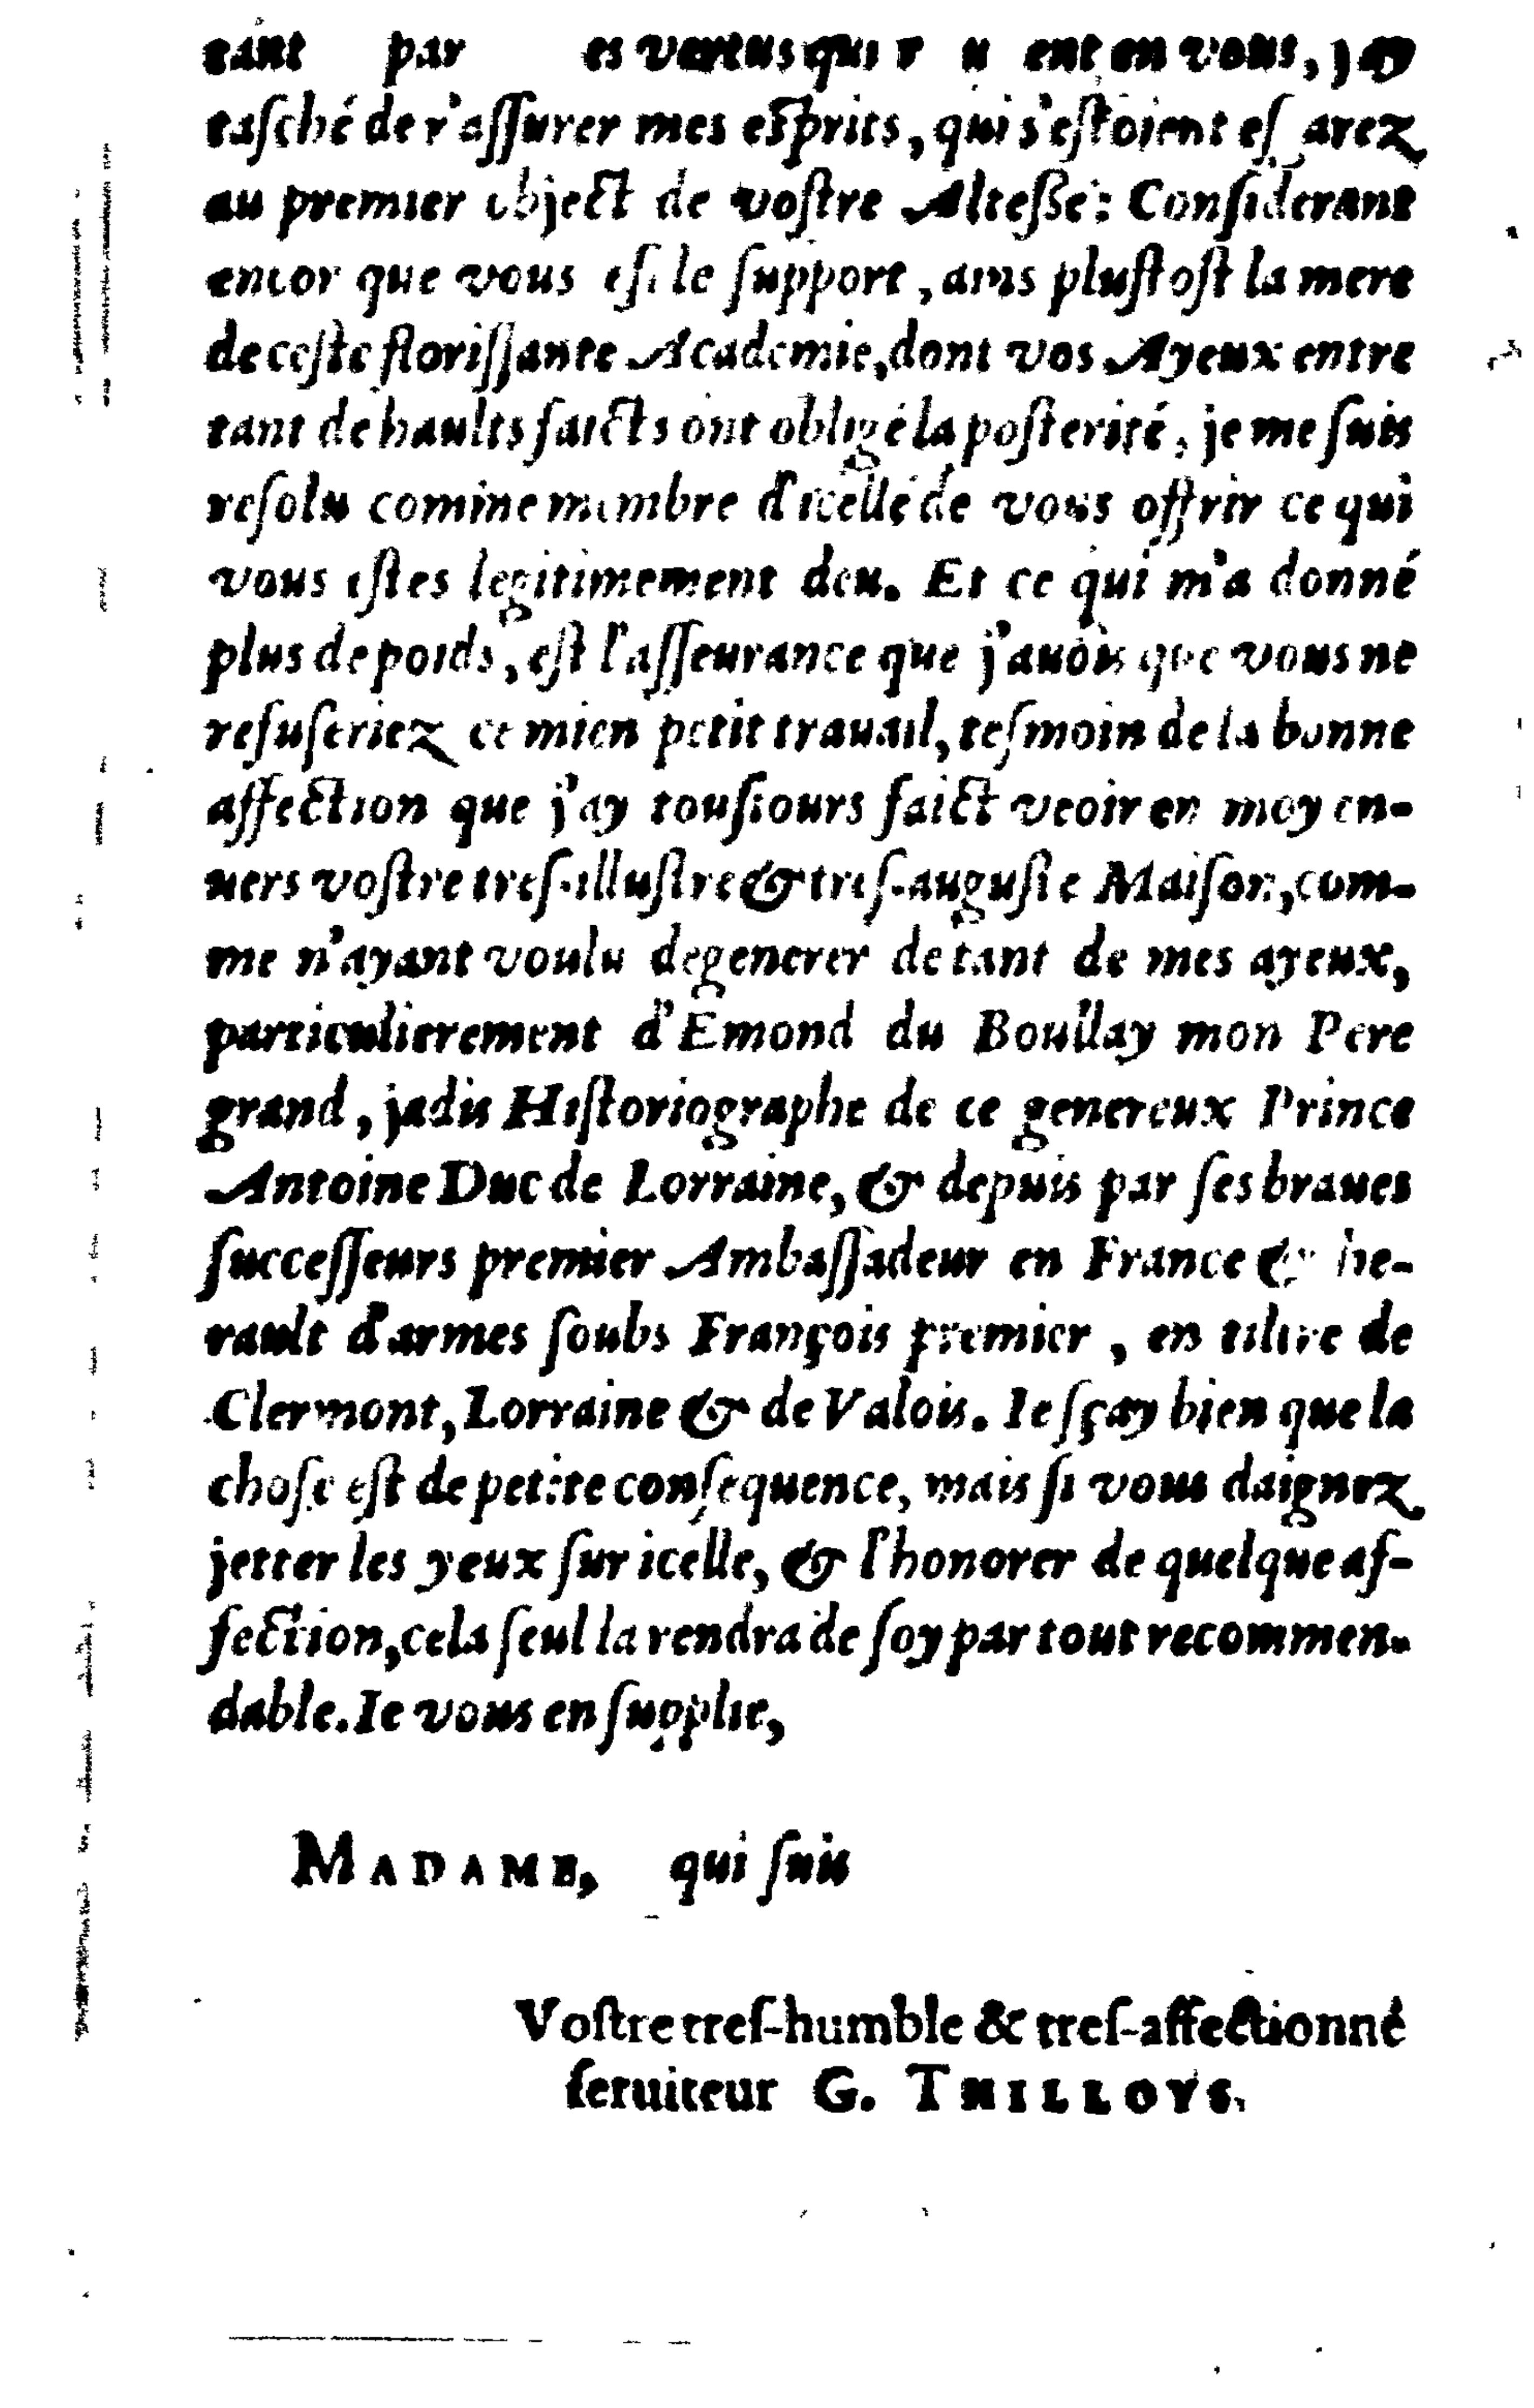 tant par es vertus qui ent en vous, j'ay
tasché de r'assurer mes esprits, qui s'estoient es arez
au premier object de vostre Altesse: Considerant
encor que vous este le support, ains plustost la mere
de ceste florissante Academie, dont vos Ayeux entre
tant de haults faicts ont obligé la posterité, je me suis
resolu comme membre d'icelle de vous offrir ce qui
vous estes legitimement deu. Et ce qui m'a donné
plus de poids, est l'asseurance que j'auois que vous ne
refuseriez ce mien petit trauail, tesmoin de la bonne
affection que j'ay tousiours faict veoir en moy en-
uers vostre tres-illustre & tres-auguste Maison, com-
me n'ayant voulu degenerer de tant de mes ayeux,
particulierement d'Emond du Boullay mon Pere
grand, jadis Historiographe de ce genereux Prince
Antoine Duc de Lorraine, & depuis par ses braues
successeurs premier Ambassadeur en France & he-
rault d'armes soubs François premier, en tiltre de
Clermont, Lorraine & de Valois. Ie sçay bien que la
chose est de petite consequence, mais si vous daignez
jetter les yeux sur icelle, & l'honorer de quelque af-
fection, cela seul la rendra de soy par tout recommen-
dable. Ie vous en supplie,
MADAME, qui suis
Vostre tres-humble & tres-affectionné
seruiteur G. THILLOYS.